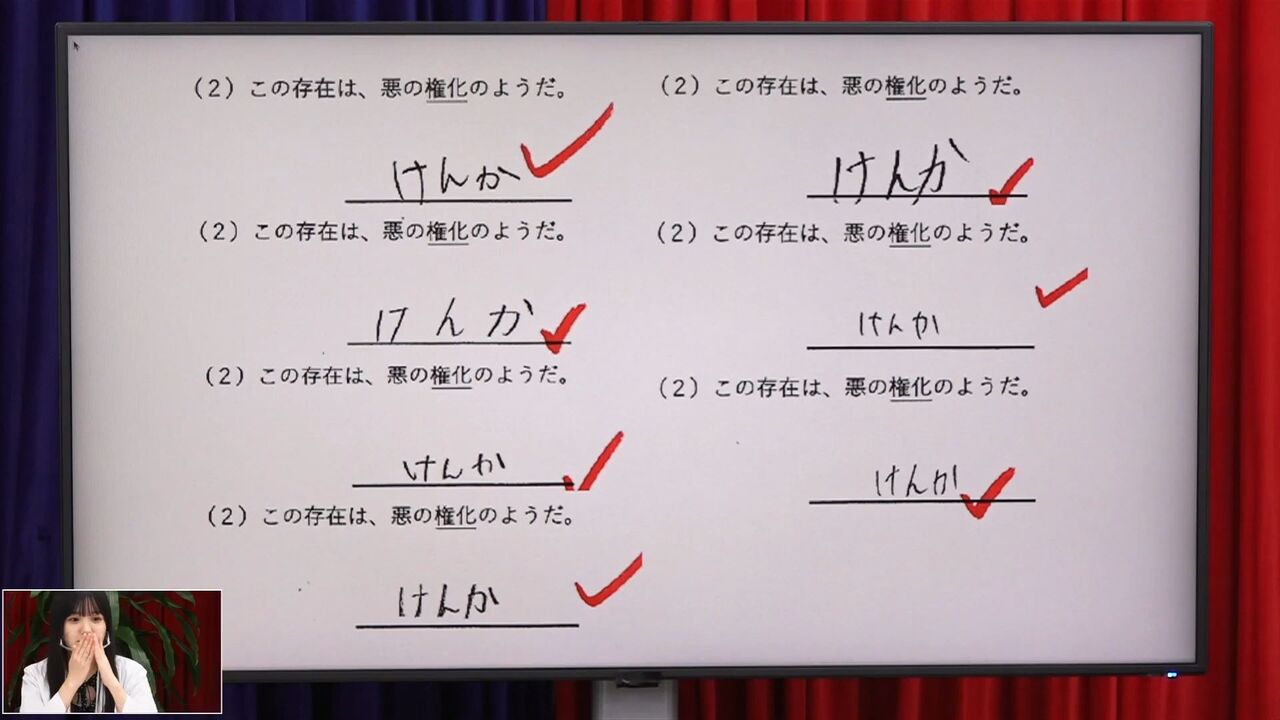 （2）この存在は、悪の権化のようだ。
けんか
（2）この存在は、悪の権化のようだ。
けんか
（2）この存在は、悪の権化のようだ。
けんか
（2）この存在は、悪の権化のようだ。
けんか
（2）この存在は、悪の権化のようだ。
けんか
（2）この存在は、悪の権化のようだ。
けんか
（2）この存在は、悪の権化のようだ。
けんか